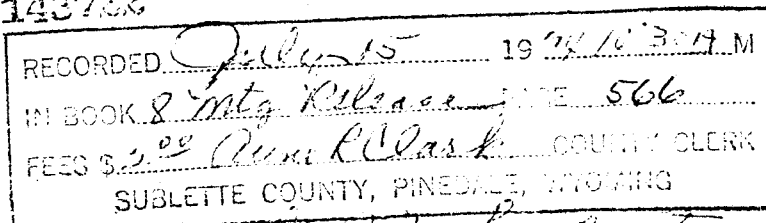 RECORDED July 15 19 74 10:30 A M
IN BOOK 8 Mtg Release PAGE 566
FEES $ COUNTY CLERK
SUBLETTE COUNTY, PINEDALE, WYOMING